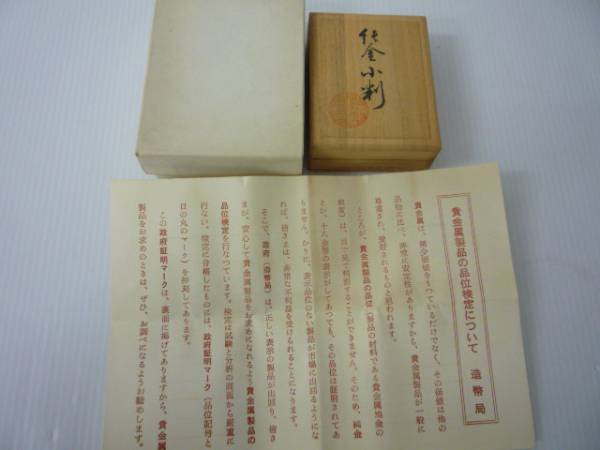 純金小判
貴金属製品の品位検定について　造幣局
貴金属は、稀少価値をもっているだけでなく、その価値は他の
品物に比べ、非常に安定性がありますから、貴金属製品が一般に
尊重され、愛好されるものと思われます。
ところが、貴金属製品の品位（製品の材料である貴金属地金の
純度）は、目で見て判断することができません。そのため、純金
とか、十八金等の表示がしてあっても、その品位は証明されてあ
りません。かりに、表示品位のない製品が市場に出回るようにな
れば、皆さまは、非常な不利益を受けられることになります。
そこで、政府（造幣局）は、正しい表示の製品が出回り、皆さ
まが、安心して貴金属製品をお求めになれるよう貴金属製品の
品位検定を行なっています。検定は試験と分析の両面から厳重に
行ない、検定に合格したものには、政府証明マーク（品位記号と
日の丸のマーク）を押刻してあります。
この政府証明マークは、裏面に掲げてありますから、貴金属
製品をお求めのときは、ぜひ、お調べになるようお勧めします。